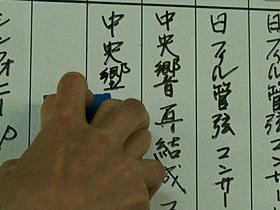 日フィル管弦
日フィル管弦コンサー
中央響再結成
中央響
シンフォニー